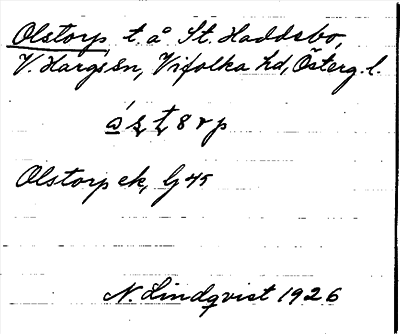 Olstorp t. å St. Haddebo,
V. Hargs sn, Vifolka hd, Österg. l.
Olstorp ek, bj 45
N. Lindqvist 1926